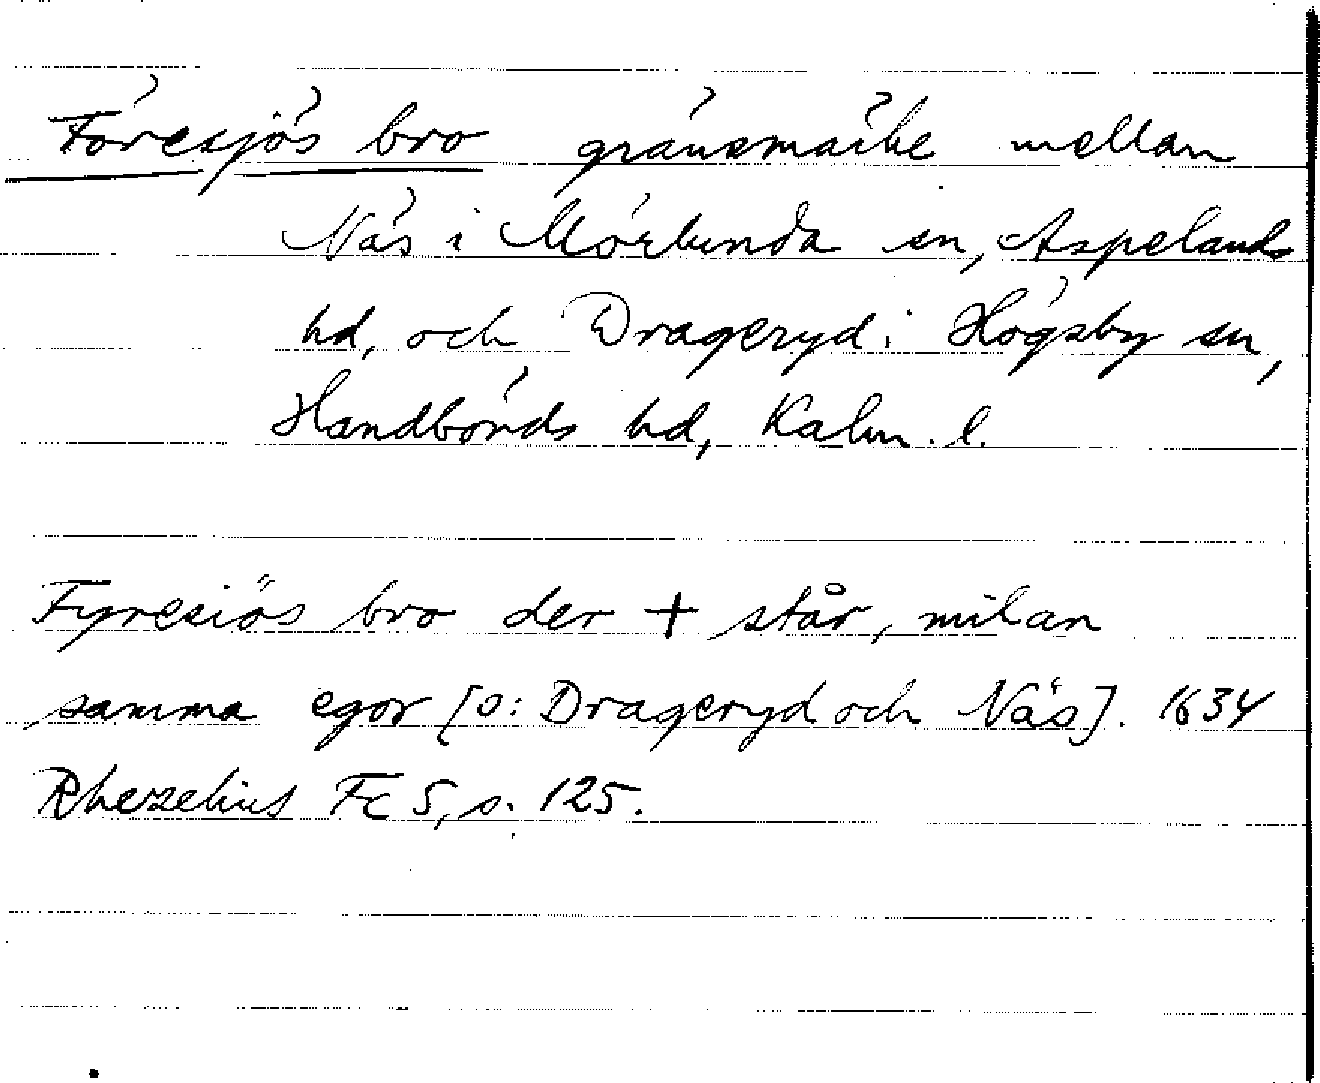 Föresjös bro gränsmärke mellan
Näs i Mörlunda sn, Aspelands
hd, och Drageryd i Högsby sn,
Handbörds hd, Kalm. l.
Fyresiös bro der + står, millan
samma egor [ɔ: Drageryd och Näs]. 1634
Rhezelius Fc 5, s. 125.